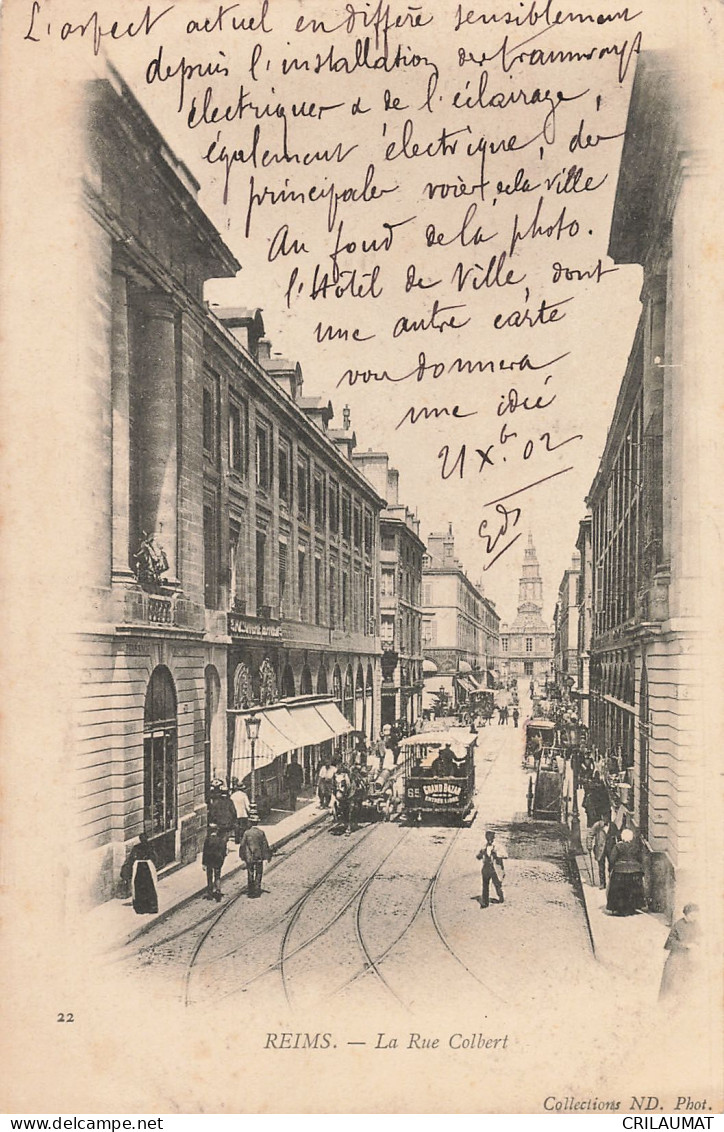 L'aspect actuel en diffère sensiblement
depuis l'installation des tramways
électriques & de l'éclairage,
également électrique, des
principales voies de la ville
Au fond de la photo.
l'Hôtel de Ville, dont
une autre carte
vous donnera
une idée
21 Xbre 02
65
GRAND BAZAR
22
REIMS. — La Rue Colbert
Collections ND. Phot.
CRILAUMAT